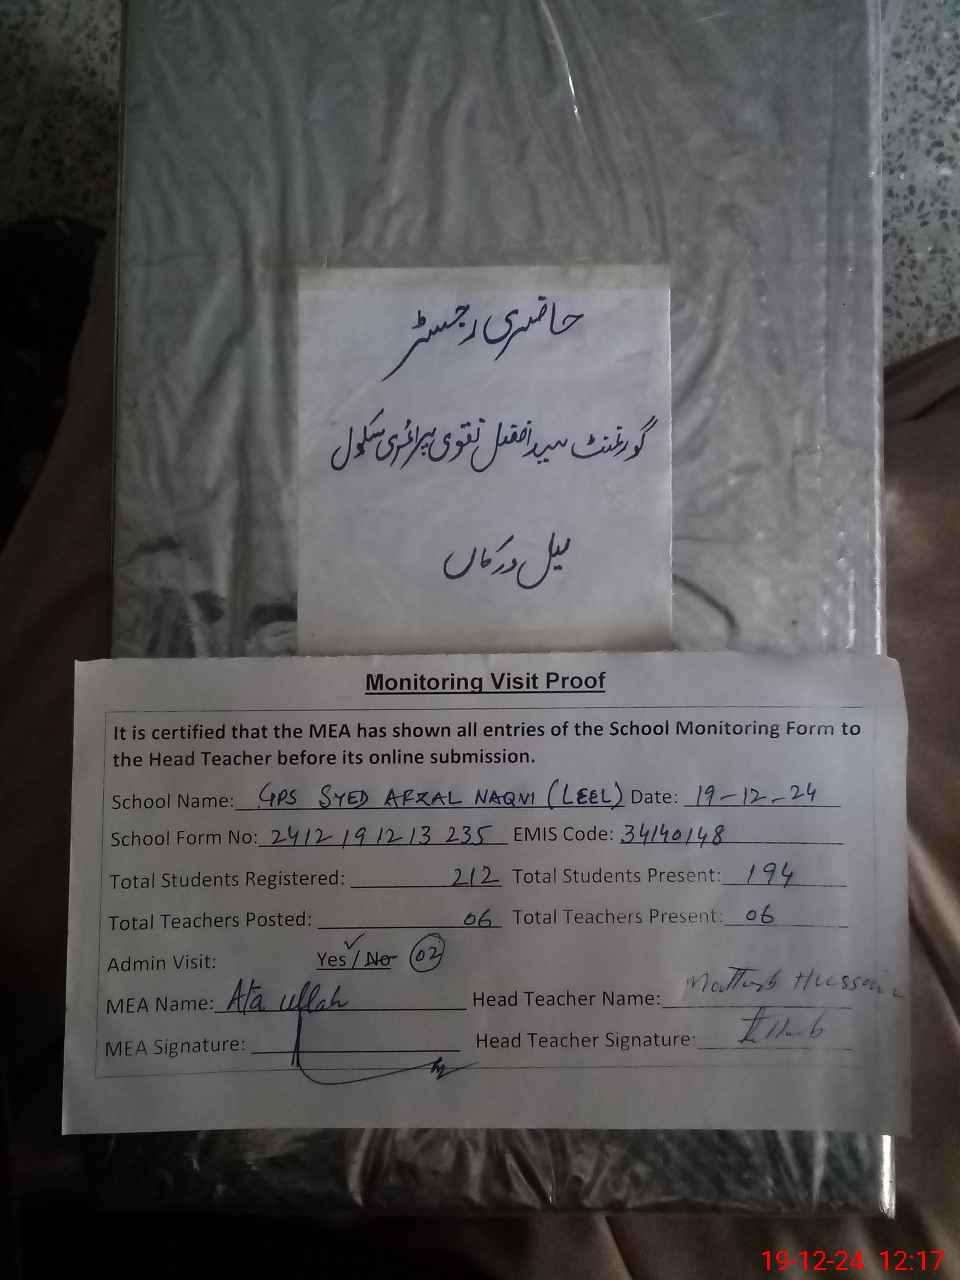 حاضری رجسٹر
گورنمنٹ سید افضل نقوی پرائمری سکول
لیل ورکاں
Monitoring Visit Proof
It is certified that the MEA has shown all entries of the School Monitoring Form to
the Head Teacher before its online submission.
School Name: GPS SYED AFZAL NAQVI (LEEL) Date: 19-12-24
School Form No: 2412 19 12 13 235 EMIS Code: 34140148
Total Students Registered: 212 Total Students Present: 194
Total Teachers Posted: 06 Total Teachers Present: 06
Admin Visit: Yes / No 02
MEA Name: Ata ullah Head Teacher Name: Hussain
MEA Signature: Head Teacher Signature:
19-12-24 12:17